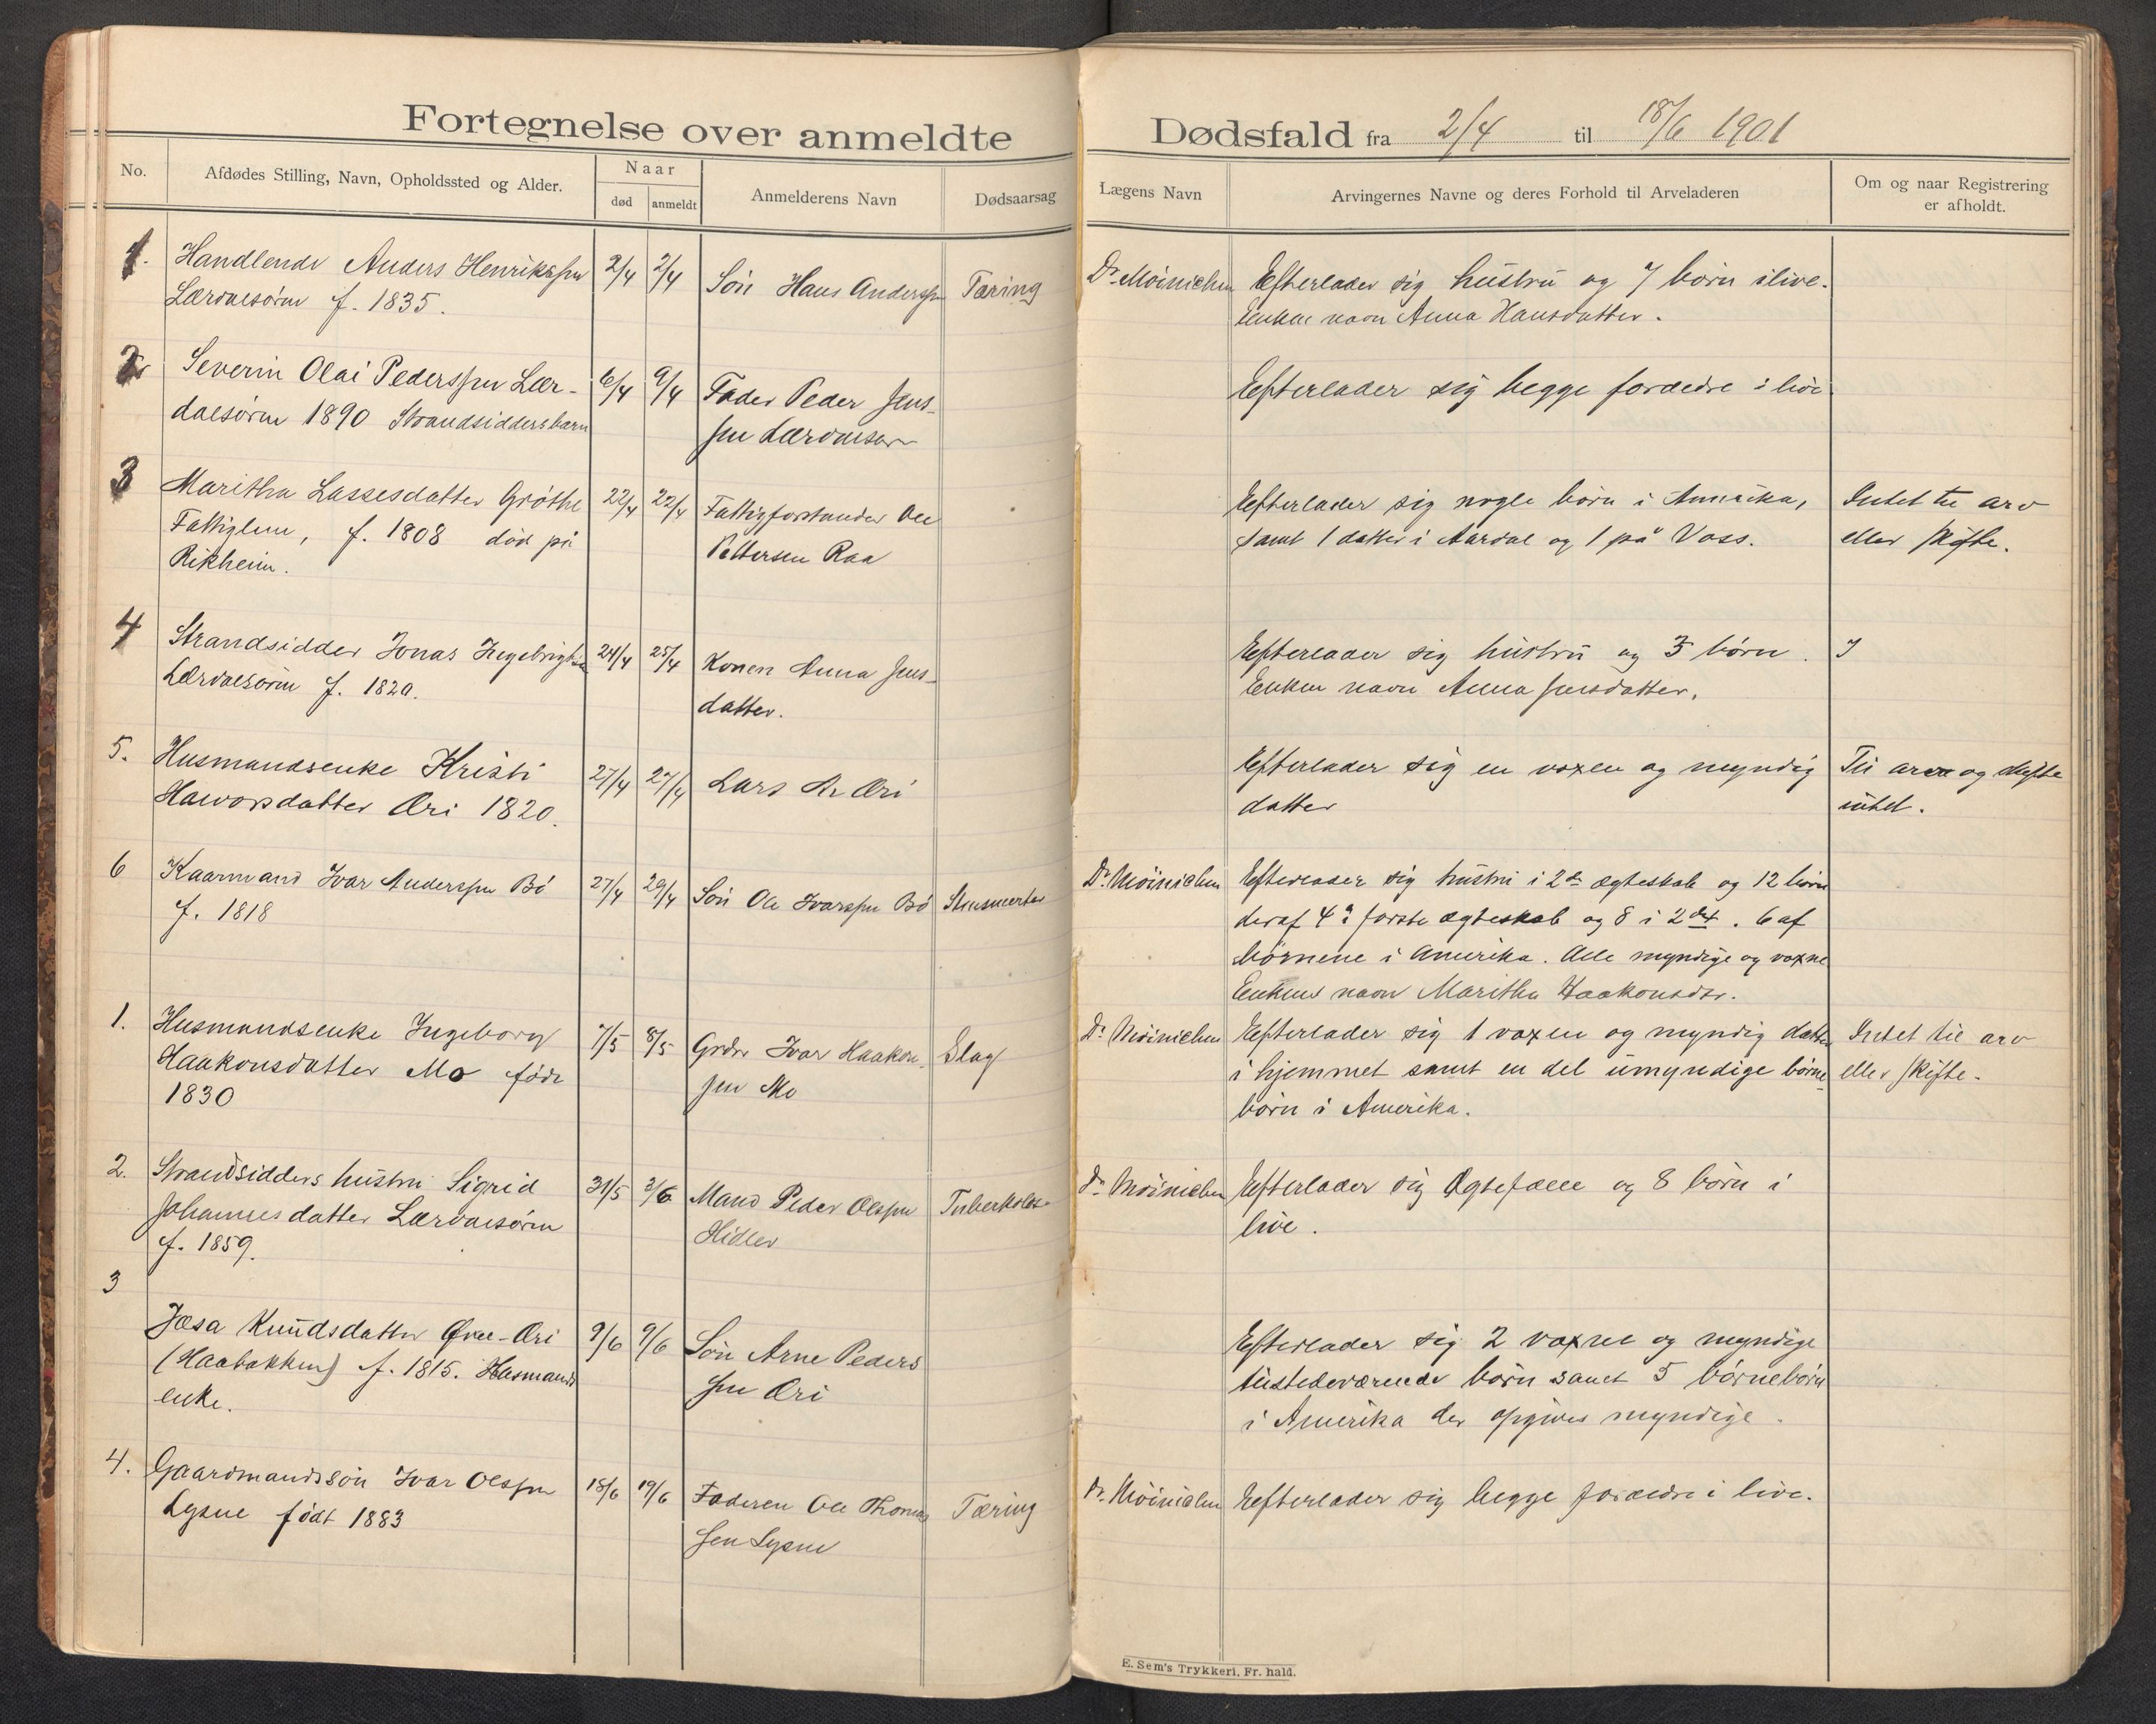 Fortegnelse over anmeldte Dødsfald fra 2/4 til 18/6 1901
No.
Afdødes Stilling, Navn, Opholdssted og Alder.
Naar
død
anmeldt
Anmelderens Navn
Dødsaarsag
Lægens Navn
Arvingernes Navne og deres Forhold til Arveladeren
Om og naar Registrering
er afholdt.
1. Handlende Anders Henrikssen
Lærdalsøren f. 1835.
2/4 2/4
Søn Hans Anderssen
Tæring
Efterlader sig hustru og 7 børn ilive.
Enkens navn Anna Hansdatter.
2 Severin Olai Pederssen Lær-
dalsøren 1890 Strandsiddersbarn
6/4 9/4
Fader Peder Jens-
sen Lærdalsøren
Efterlader sig begge forældre i live
3 Maritha Lassesdatter Grøthe
Fattiglem, f. 1808 død på
Rikheim.
22/4 22/4
Fattigforstander Ole
Pettersen Raa
Efterlader sig nogle børn i Amerika,
samt 1 datter i Aardal og 1 på Voss.
Intet til arv
eller skifte.
4 Strandsidder Jonas
Lærdalsøren f. 1820.
24/4 25/4
Konen Anna Jens-
datter.
Efterlader sig hustru og 3 børn.
Enkens navn Anna Jensdatter.
5. Husmandsenke Kristi
Havorsdatter Æri 1820.
27/4 27/4
Lars A. Æri
Efterlader sig en voxen og myndig
datter
Til arv og skifte
intet.
6 Kaarmand Ivar Anderssen Bø
f. 1818
27/4 29/4
Søn Ole Ivarssen Bø
Efterlader sig hustru i 2det ægteskab og 12 børn
deraf 4 i første ægteskab og 8 i 2det. 6 af
børnene i Amerika. Alle myndige og voxne
Enkens navn Maritha Haakonsdtr.
1. Husmandsenke Ingeborg
Haakonsdatter Mo føde
1830
7/5 8/5
Grdbr Ivar Haakon-
sen Mo
Slag
Efterlader sig 1 voxen og myndig datter
i hjemmet samt en del umyndige børne
børn i Amerika.
Intet til arv
eller skifte.
2. Strandsidders hustru Sigrid
Johannesdatter Lærdalsøren
f. 1859.
31/5 3/6
Mand Peder Olssen
Hidler
Efterlader sig Ægtefælle og 8 børn i
live.
3
Jøsa Knudsdatter Øvre-Æri
(Haabakken) f. 1815. Husmands
enke.
9/6 9/6
Søn Arne Peders
sen Æri
Efterlader sig 2 voxne og myndige
tilstedeværende børn samt 5 børnebørn
i Amerika der opgives myndige.
4. Gaardmandssøn Ivar Olssen
Lysne født 1883
18/6 19/6
Faderen Ole Thomas
sen Lysne
Tæring
Efterlader sig begge forældre i live.
E. Sem's Trykkeri, Fr. hald.